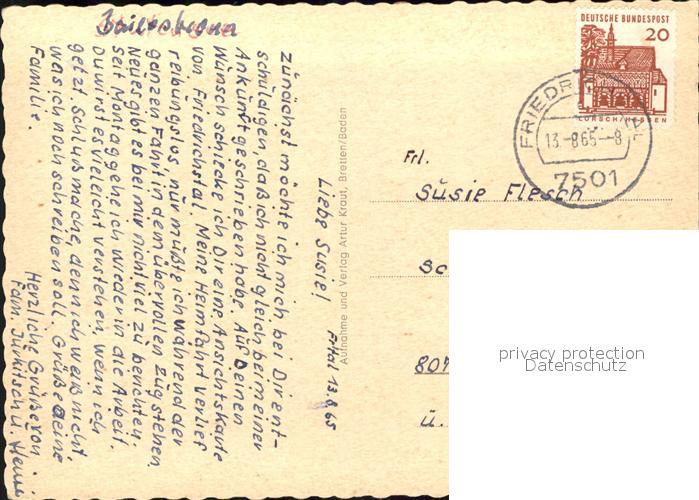 Baiersbronn
Liebe Susie!
Frtal 13.8.65
Zunächst möchte ich mich bei Dir ent-
schüldigen daß ich nicht gleich bei meiner
Ankunft geschrieben habe. Auf Deinen
Wünsch schicke ich Dir eine Ansichtskarte
von Friedrichstal. Meine Heimfahrt verlief
reibungslos, nur müßte ich während der
ganzen Fahrt in dem übervollen Zug stehen.
Neues gibt es bei mir nicht viel zu berichten.
Seit Montag gehe ich wieder in die Arbeit.
Du wirst es vieleicht verstehen, wenn ich
jetzt Schluß mache, denn ich weiß nicht,
was ich noch schreiben soll. Grüße deine
Familie.
Herzliche Grüße von
Fam. Jurkitsch u.
Aufnahme und Verlag Artur Kraut, Bretten/Baden
DEUTSCHE BUNDESPOST
20
LORSCH/HESSEN
FRIEDR
13.-8.65.-8
7501
Frl.
Susie Flesch
Sc
807
ü.
privacy protection
Datenschutz